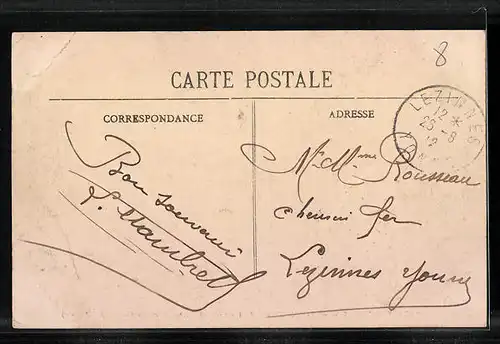 8
CARTE POSTALE
CORRESPONDANCE
ADRESSE
LEZINNES
12 *
25 - 8
12
YONNE
Bon souvenir
Mr Mme Rousseau
chemin fer
Lezinnes Yonne